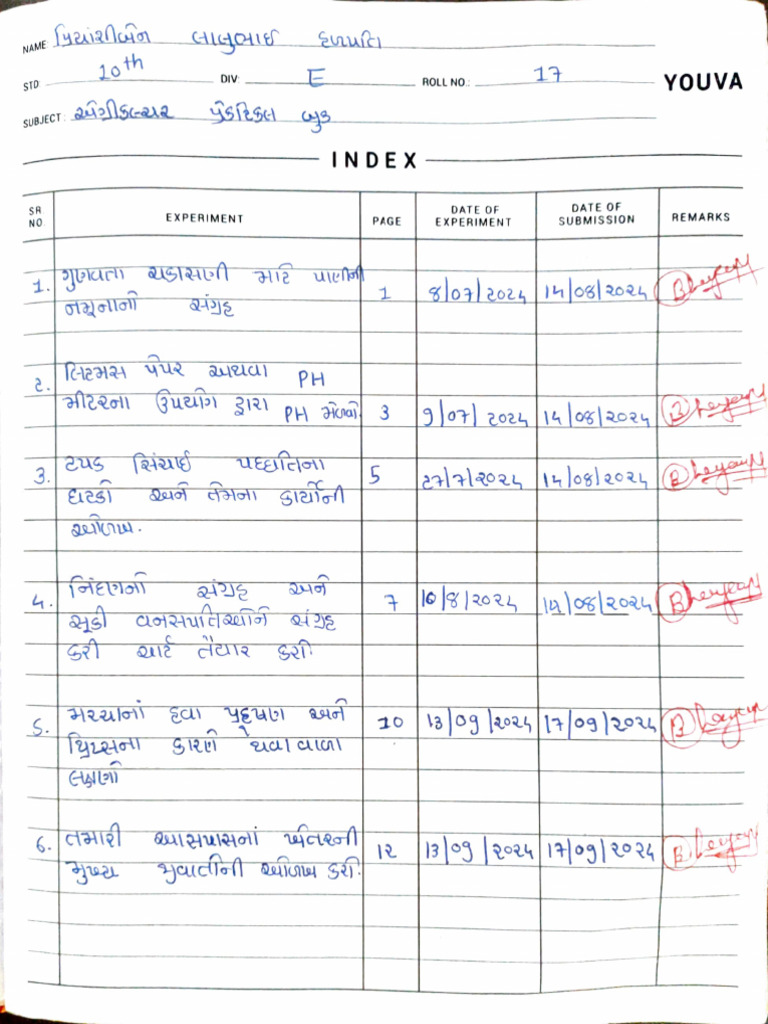 NAME: પ્રિયાંશીબેન લાલુભાઈ હળપતિ
STD: 10th DIV: E ROLL NO.: 17 YOUVA
SUBJECT: એગ્રીકલ્ચર પ્રેકટિકલ બુક
INDEX
SR NO. EXPERIMENT PAGE DATE OF EXPERIMENT DATE OF SUBMISSION REMARKS
1. ગુણવતા ચકાસણી માટે પાણીની 1 8/07/2024 14/08/2024
નમૂનાનો સંગ્રહ
2. લિટમસ પેપર અથવા PH
મીટરના ઉપયોગ દ્વારા PH મેળવો. 3 9/07/2024 14/08/2024
3. ટપક સિંચાઈ પધ્ધતિના 5 27/7/2024 14/08/2024
ઘટકો અને તેમના કાર્યોની
ઓળખ.
4. નિંદણનો સંગ્રહ અને 7 10/8/2024 14/08/2024
સૂકી વનસપતિઓને સંગ્રહ
કરી ચાર્ટ તૈયાર કરો.
5. મરચાનાં હવા પ્રદૂષણ અને 10 13/09/2024 17/09/2024
થ્રિપ્સના કારણે થવાવાળા
લક્ષણો
6. તમારી આસપાસનાં ખેતરની 12 13/09/2024 17/09/2024
મુખ્ય જીવાતોની ઓળખ કરો.